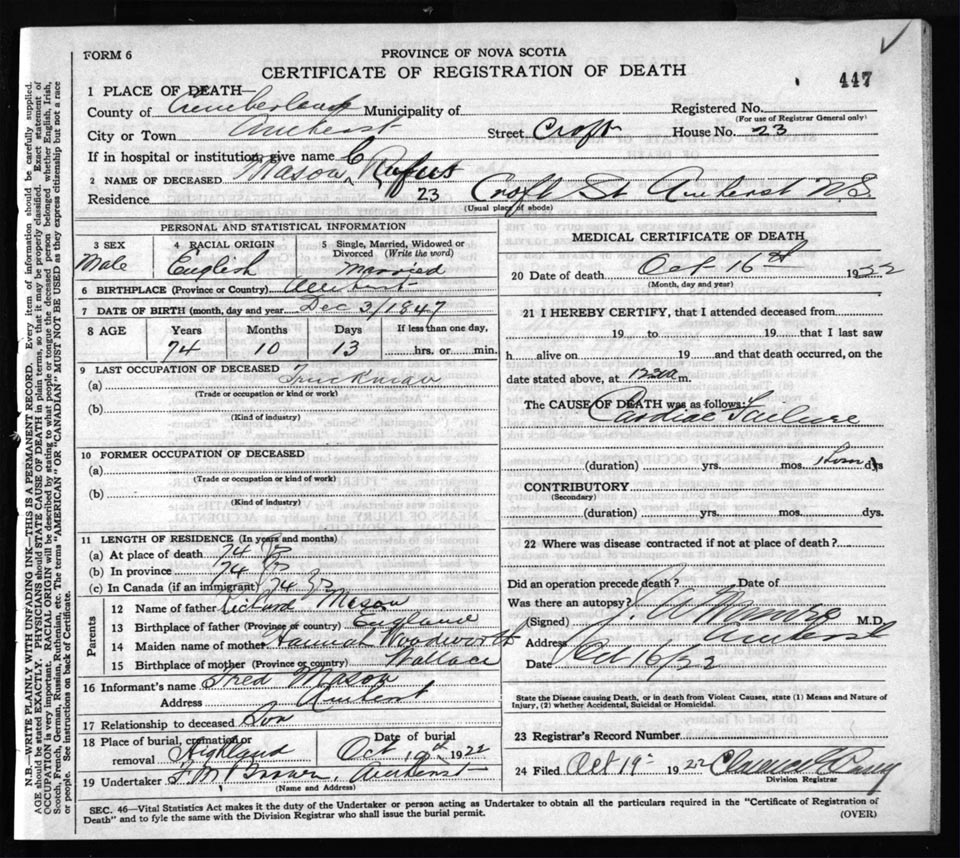 FORM 6
PROVINCE OF NOVA SCOTIA
CERTIFICATE OF REGISTRATION OF DEATH
447
1 PLACE OF DEATH—
County of Cumberland Municipality of
Registered No.
(For use of Registrar General only)
City or Town Amherst Street Croft House No. 23
If in hospital or institution, give name
2 NAME OF DECEASED Mason, C Rufus
Residence 23 Croft St Amherst N.S.
(Usual place of abode)
PERSONAL AND STATISTICAL INFORMATION
3 SEX
Male
4 RACIAL ORIGIN
English
5 Single, Married, Widowed or Divorced (Write the word)
Married
6 BIRTHPLACE (Province or Country) Amherst
7 DATE OF BIRTH (month, day and year) Dec 3/1847
8 AGE Years Months Days If less than one day,
74 10 13 hrs. or min.
9 LAST OCCUPATION OF DECEASED
(a) Truckman
(Trade or occupation or kind or work)
(b)
(Kind of industry)
10 FORMER OCCUPATION OF DECEASED
(a)
(Trade or occupation or kind of work)
(b)
(Kind of industry)
11 LENGTH OF RESIDENCE (In years and months)
(a) At place of death 74
(b) In province 74
(c) In Canada (if an immigrant) 74
Parents
12 Name of father Richard Mason
13 Birthplace of father (Province or country) England
14 Maiden name of mother Hannah Woodworth
15 Birthplace of mother (Province or country) Wallace
16 Informant's name Fred Mason
Address Amherst
17 Relationship to deceased Son
18 Place of burial, cremation or removal Highland
Date of burial
Oct 19th 1922
19 Undertaker Amherst
(Name and Address)
MEDICAL CERTIFICATE OF DEATH
20 Date of death Oct 16th 1922
(Month, day and year)
21 I HEREBY CERTIFY, that I attended deceased from
19 to 19 that I last saw
h alive on 19 and that death occurred, on the
date stated above, at m.
The CAUSE OF DEATH was as follows:
Cardiac Failure
(duration) yrs. mos. ds
CONTRIBUTORY
(Secondary)
(duration) yrs. mos. dys.
22 Where was disease contracted if not at place of death?
Did an operation precede death? Date of
Was there an autopsy?
(Signed) M.D.
Address Amherst
Date Oct 16/22
State the Disease causing Death, or in death from Violent Causes, state (1) Means and Nature of
Injury, (2) whether Accidental, Suicidal or Homicidal.
23 Registrar's Record Number
24 Filed Oct 19 1922
Division Registrar
SEC. 46—Vital Statistics Act makes it the duty of the Undertaker or person acting as Undertaker to obtain all the particulars required in the "Certificate of Registration of
Death" and to fyle the same with the Division Registrar who shall issue the burial permit.
(OVER)
N.B.—WRITE PLAINLY WITH UNFADING INK—THIS IS A PERMANENT RECORD. Every item of information should be carefully supplied.
AGE should be stated EXACTLY. PHYSICIANS should STATE CAUSE OF DEATH in plain terms, so that it may be properly classified. Exact statement of
OCCUPATION is very important. RACIAL ORIGIN will be described by stating to what people or tongue the deceased person belonged whether English, Irish,
Scotch, French, German, Russian, Ruthenian, etc. The terms "AMERICAN" OR "CANADIAN" MUST NOT BE USED as they express citizenship but not a race
or people. See instructions on back of Certificate.